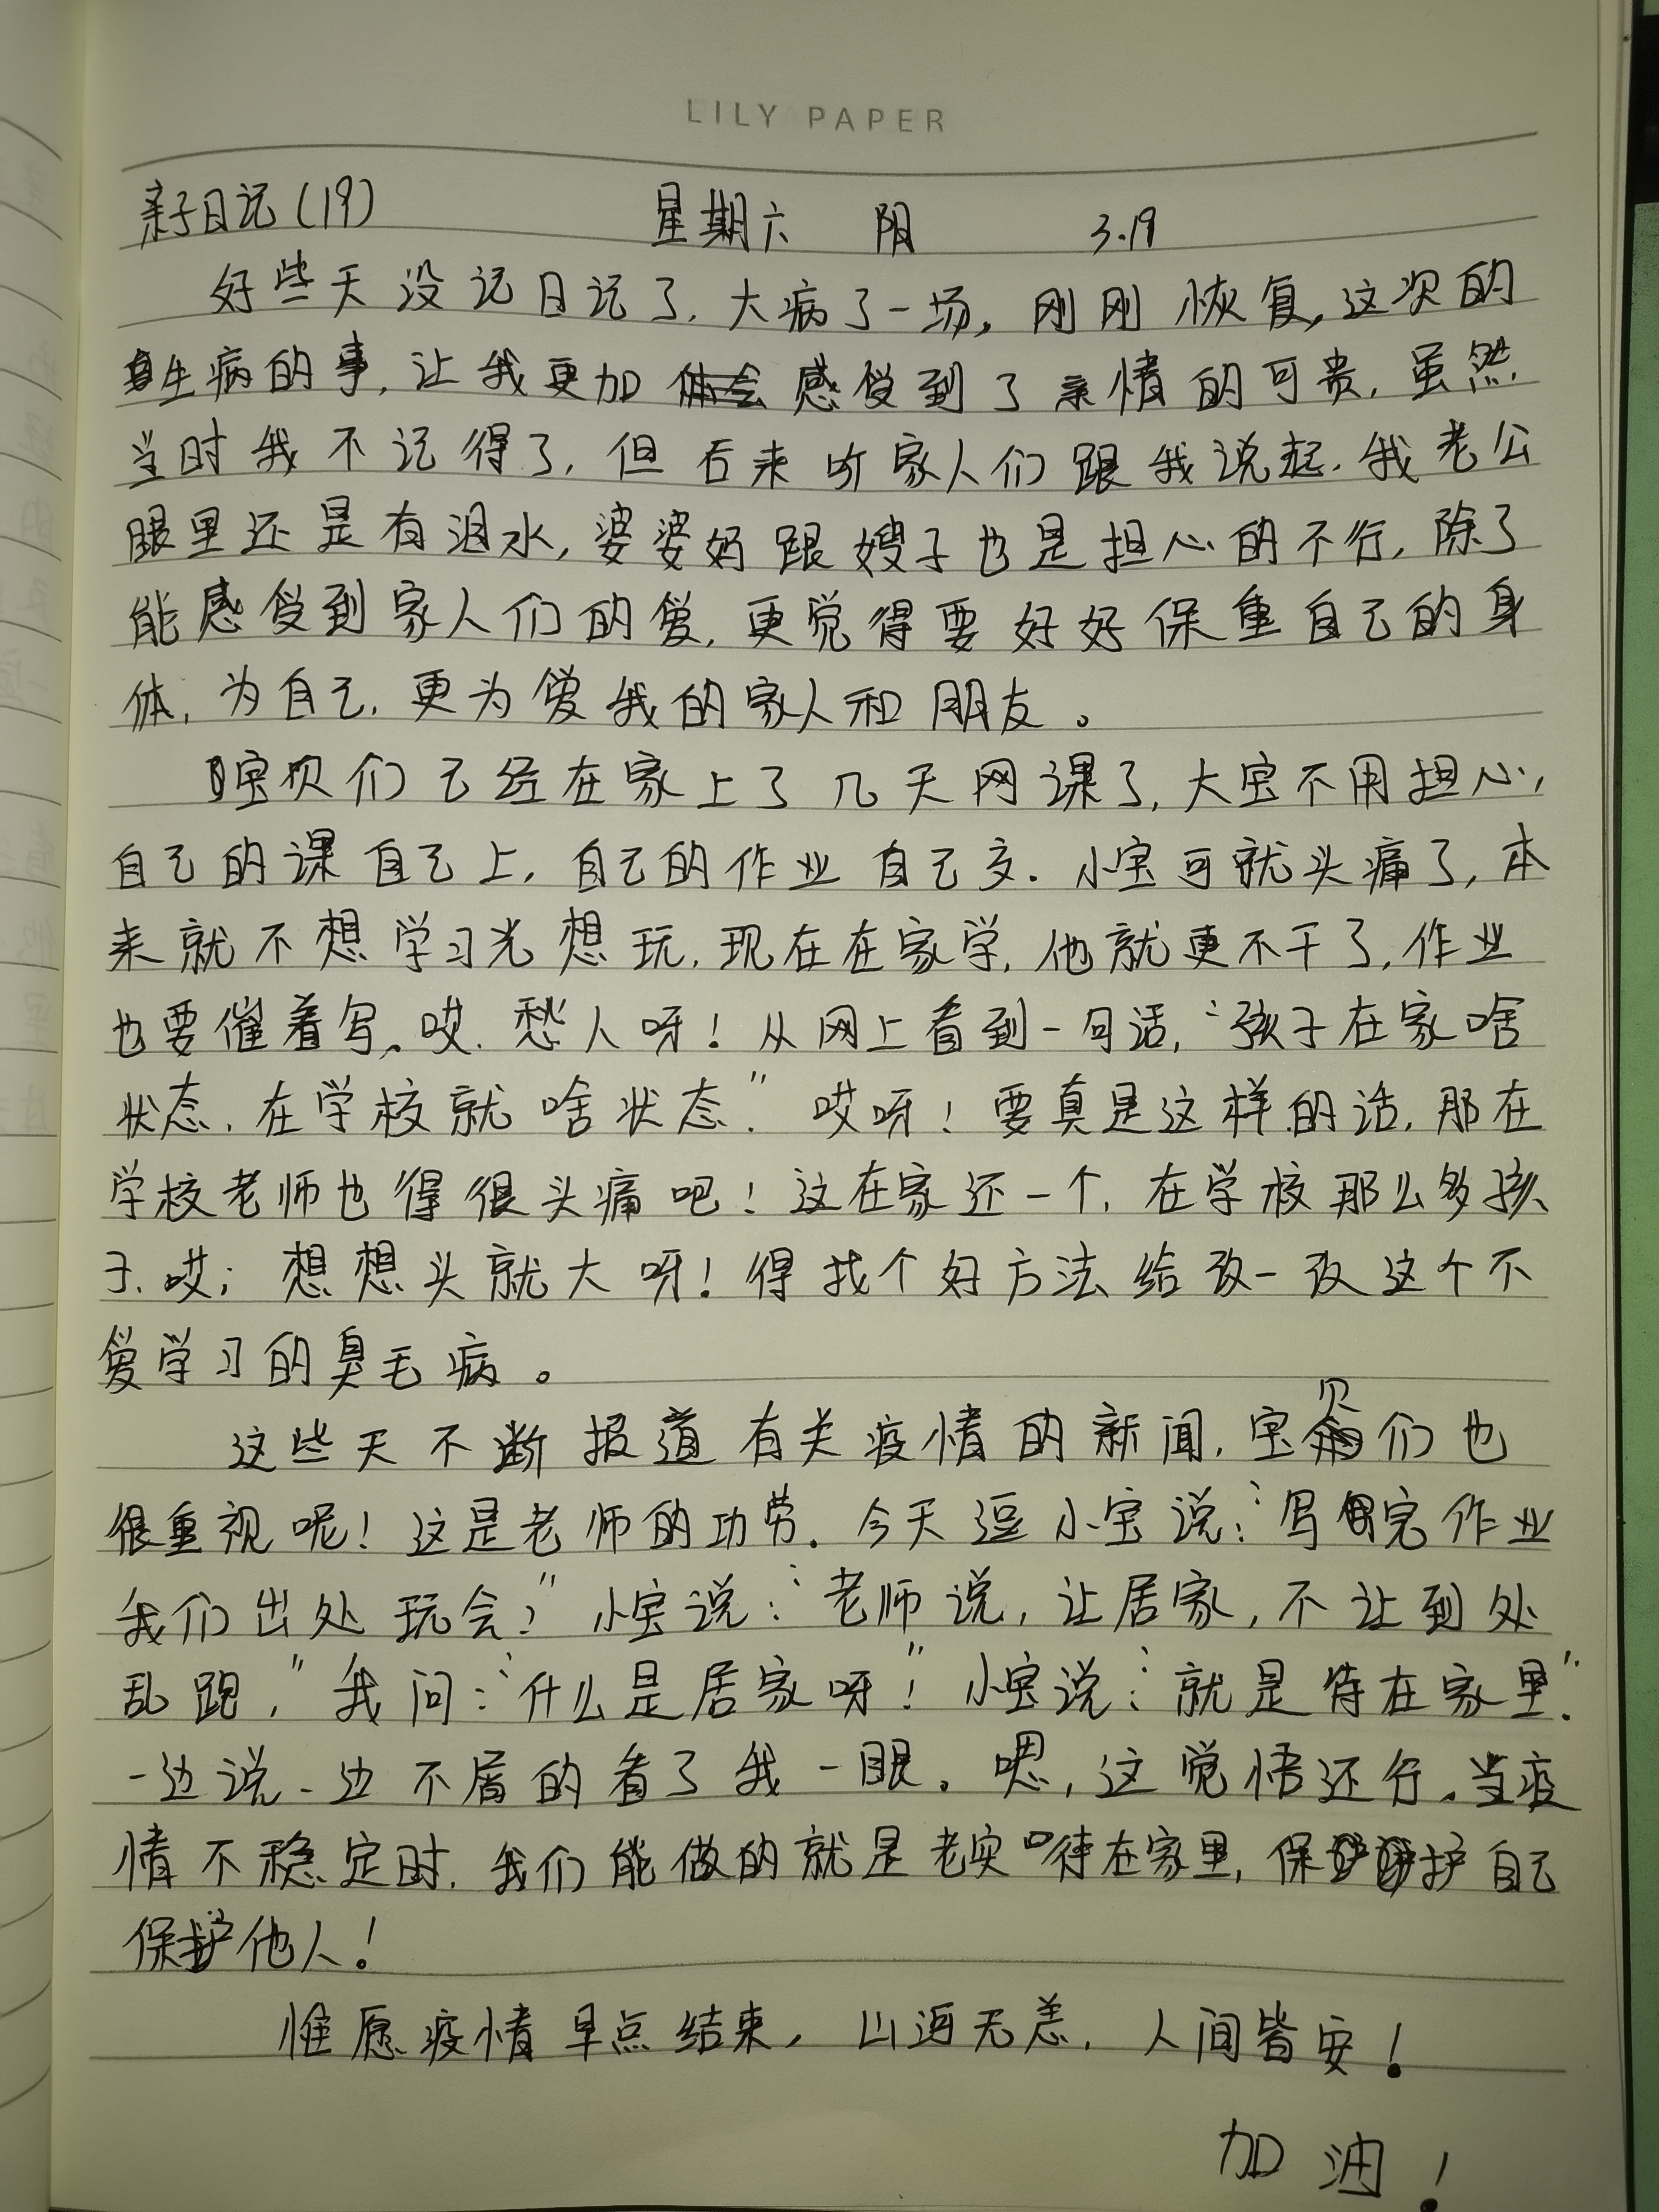 LILY PAPER
亲子日记(19) 星期六 阴 3.19
好些天没记日记了,大病了一场,刚刚恢复,这次的
生病的事,让我更加感受到了亲情的可贵,虽然
当时我不记得了,但后来听家人们跟我说起,我老公
眼里还是有泪水,婆婆妈跟嫂子也是担心的不行,除了
能感受到家人们的爱,更觉得要好好保重自己的身
体,为自己,更为爱我的家人和朋友。
宝贝们已经在家上了几天网课了,大宝不用担心,
自己的课自己上,自己的作业自己交.小宝可就头痛了,本
来就不想学习光想玩,现在在家学,他就更不干了,作业
也要催着写。哎.愁人呀!从网上看到一句话,“孩子在家啥
状态,在学校就啥状态”哎呀!要真是这样的话,那在
学校老师也得很头痛吧!这在家还一个,在学校那么多孩
子.哎;想想头就大呀!得找个好方法给改一改这个不
爱学习的臭毛病。
这些天不断报道有关疫情的新闻,宝贝们也
很重视呢!这是老师的功劳.今天逗小宝说:“写完作业
我们出处玩会?”小宝说:“老师说,让居家,不让到处
乱跑,”我问:“什么是居家呀!”小宝说:“就是待在家里”.
一边说一边不屑的看了我一眼。嗯,这觉悟还行。当疫
情不稳定时,我们能做的就是老实待在家里,保护自己
保护他人!
惟愿疫情早点结束,山海无恙,人间皆安!
加油!